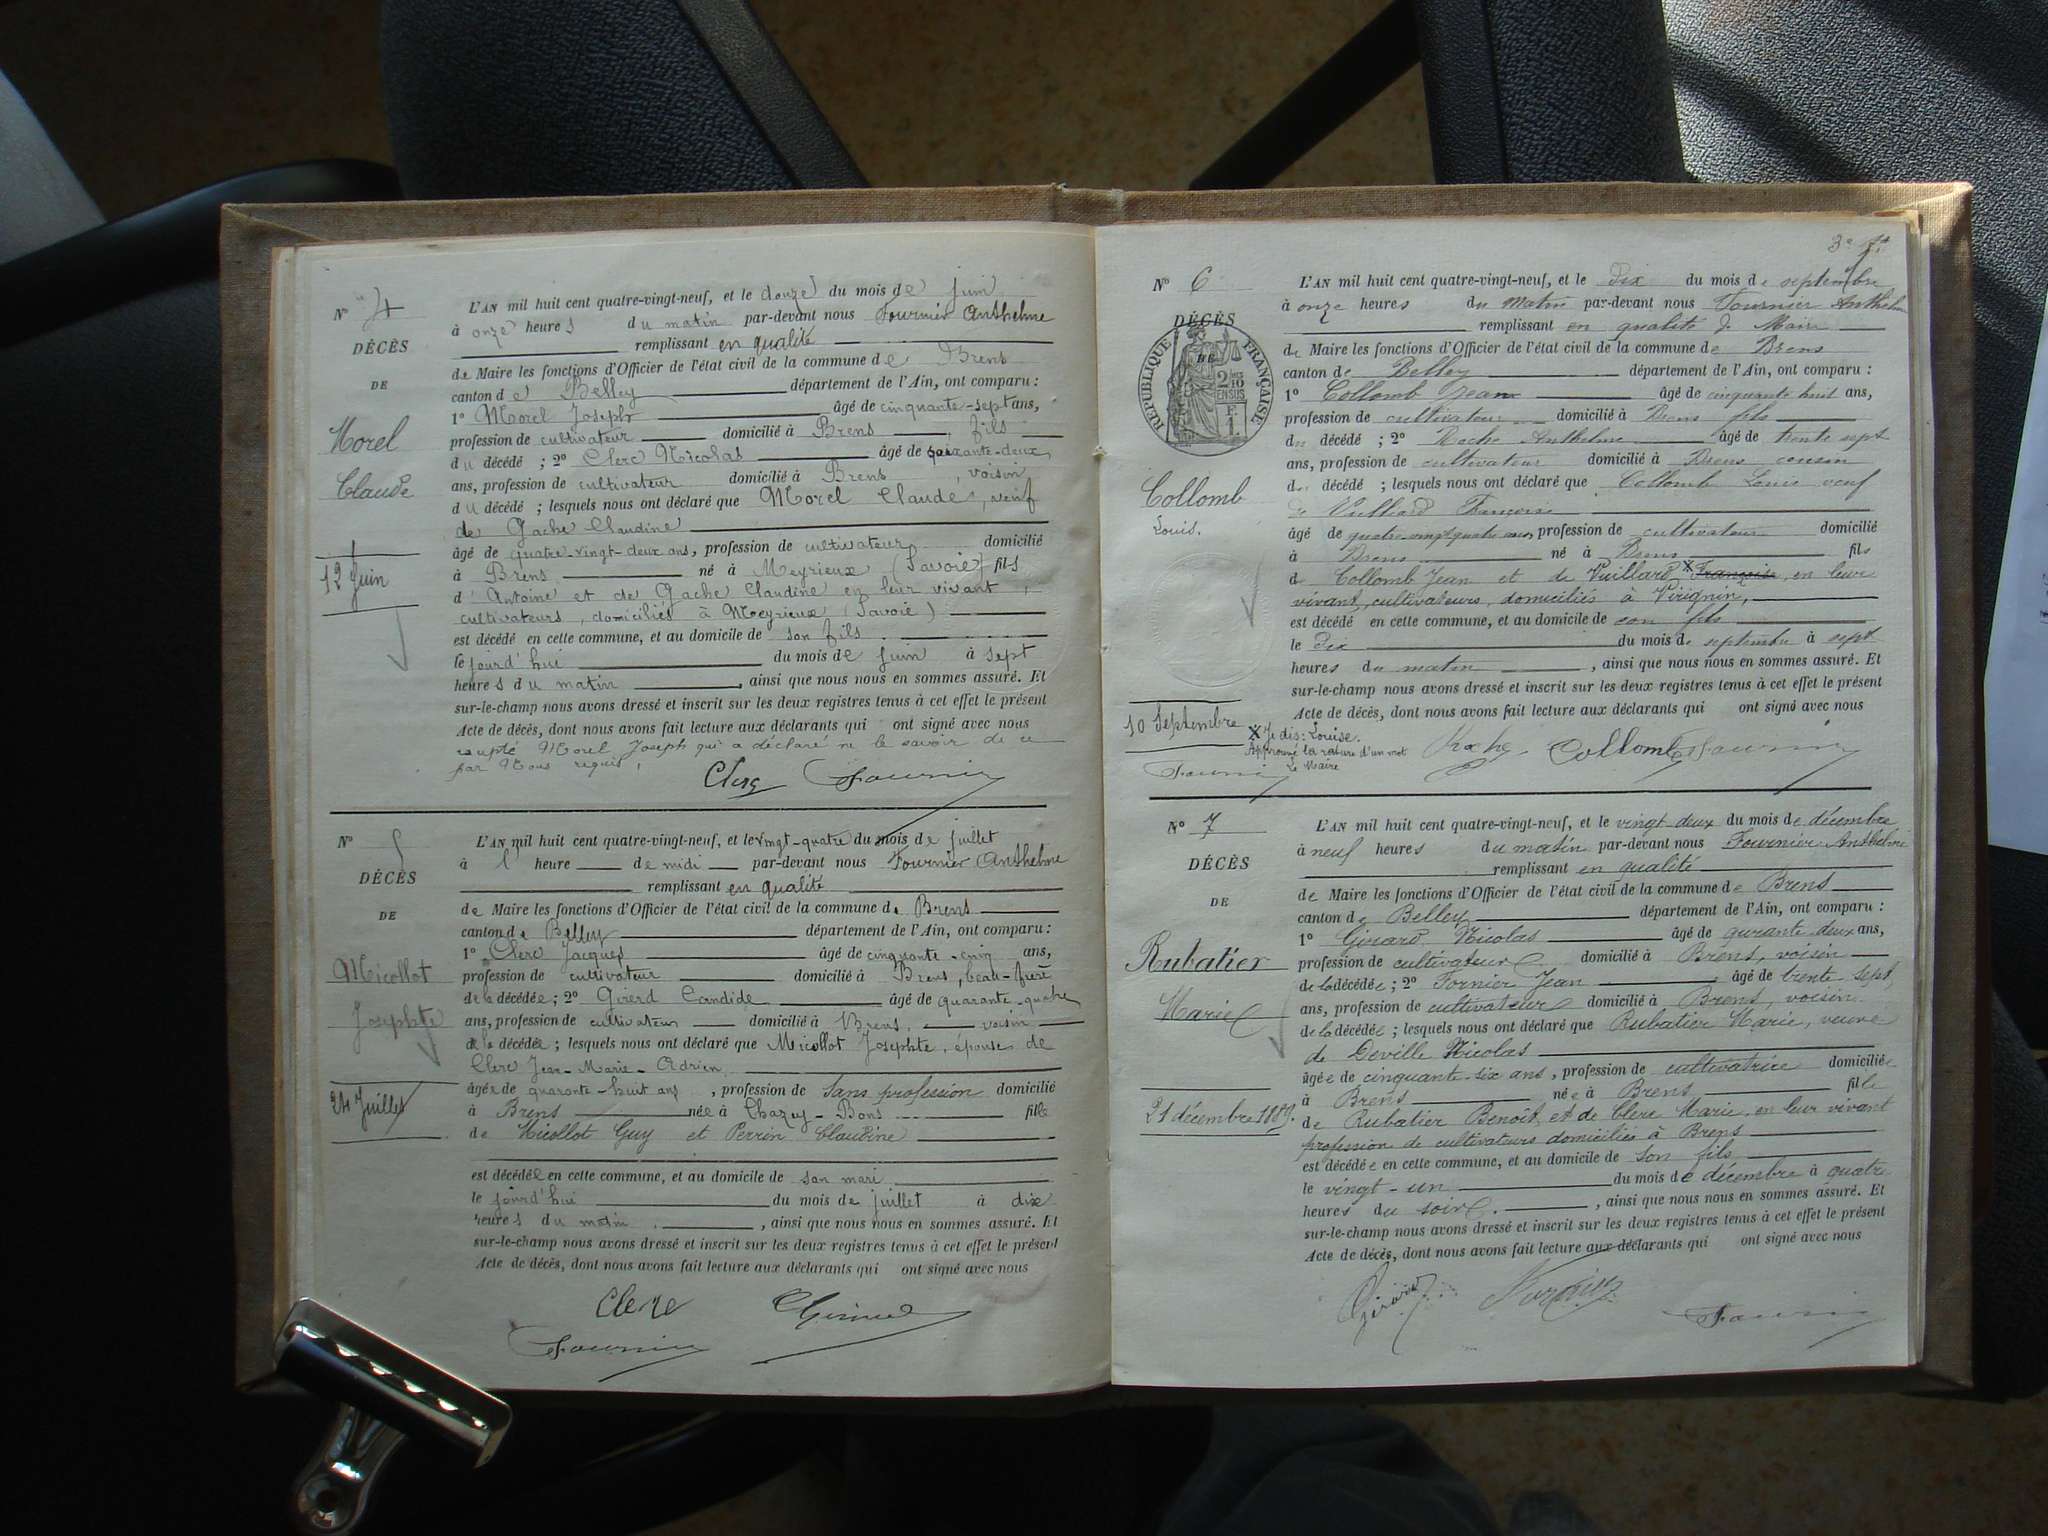 N° 4
DÉCÈS
DE
Morel
Claude
12 Juin
L'AN mil huit cent quatre-vingt-neuf, et le douze du mois de juin
à onze heures du matin par-devant nous Fournier Anthelme
remplissant en qualité
de Maire les fonctions d'Officier de l'état civil de la commune de Brens
canton de Belley département de l'Ain, ont comparu :
1° Morel Joseph âgé de cinquante-sept ans,
profession de cultivateur domicilié à Brens, fils
du décédé ; 2° Clerc Nicolas âgé de soixante-deux
ans, profession de cultivateur domicilié à Brens, voisin
du décédé ; lesquels nous ont déclaré que Morel Claude, veuf
de Gache Claudine
âgé de quatre-vingt-deux ans, profession de cultivateur domicilié
à Brens né à Meyrieux (Savoie) fils
d'Antoine et de Gache Claudine en leur vivant,
cultivateurs, domiciliés à Meyrieux (Savoie)
est décédé en cette commune, et au domicile de son fils.
le jourd'hui du mois de juin à sept
heures du matin, ainsi que nous nous en sommes assuré. Et
sur-le-champ nous avons dressé et inscrit sur les deux registres tenus à cet effet le présent
Acte de décès, dont nous avons fait lecture aux déclarants qui ont signé avec nous
excepté Morel Joseph qui a déclaré ne le savoir de ce
par Nous requis,
Clerc Fournier
N° 5
DÉCÈS
DE
Micollot
Josephte
24 Juillet
L'AN mil huit cent quatre-vingt-neuf, et le vingt-quatre du mois de juillet
à l' heure de midi par-devant nous Fournier Anthelme
remplissant en qualité
de Maire les fonctions d'Officier de l'état civil de la commune de Brens
canton de Belley département de l'Ain, ont comparu :
1° Clerc Jacques âgé de cinquante-cinq ans,
profession de cultivateur domicilié à Brens, beau-frère
de la décédée ; 2° Girerd Candide âgé de quarante-quatre
ans, profession de cultivateur domicilié à Brens, voisin
de la décédée ; lesquels nous ont déclaré que Micollot Josephte, épouse de
Clerc Jean-Marie-Adrien
âgée de quarante-huit ans, profession de sans profession domicilié
à Brens née à Chazey-Bons fille
de Micollot Guy et Perrin Claudine
est décédée en cette commune, et au domicile de son mari
le jourd'hui du mois de juillet à dix
heures du matin, ainsi que nous nous en sommes assuré. Et
sur-le-champ nous avons dressé et inscrit sur les deux registres tenus à cet effet le présent
Acte de décès, dont nous avons fait lecture aux déclarants qui ont signé avec nous
Clerc
Fournier
3e
N° 6
DÉCÈS
DE
RÉPUBLIQUE FRANÇAISE
Collomb
Louis.
10 Septembre
L'AN mil huit cent quatre-vingt-neuf, et le Dix du mois de septembre
à onze heures du matin par-devant nous Fournier Anthelme
remplissant en qualité de Maire
de Maire les fonctions d'Officier de l'état civil de la commune de Brens
canton de Belley département de l'Ain, ont comparu :
1° Collomb Jean âgé de cinquante huit ans,
profession de cultivateur domicilié à Brens fils
du décédé ; 2° Roche Anthelme âgé de trente sept
ans, profession de cultivateur domicilié à Brens cousin
du décédé ; lesquels nous ont déclaré que Collomb Louis veuf
de Vuillard Françoise
âgé de quatre vingt quatre ans, profession de cultivateur domicilié
à Brens né à Brens fils
de Collomb Jean et de Vuillard X Françoise, en leur
vivant, cultivateurs, domiciliés à Virignin,
est décédé en cette commune, et au domicile de son fils
le Dix du mois de septembre à sept
heures du matin, ainsi que nous nous en sommes assuré. Et
sur-le-champ nous avons dressé et inscrit sur les deux registres tenus à cet effet le présent
Acte de décès, dont nous avons fait lecture aux déclarants qui ont signé avec nous
X Je dis : Louise.
Approuvé la rature d'un mot
Le Maire
Fournier
Roche Collomb Fournier
N° 7
DÉCÈS
DE
Rubatier
Marie
21 décembre 1889.
L'AN mil huit cent quatre-vingt-neuf, et le vingt deux du mois de décembre
à neuf heures du matin par-devant nous Fournier Anthelme
remplissant en qualité
de Maire les fonctions d'Officier de l'état civil de la commune de Brens
canton de Belley département de l'Ain, ont comparu :
1° Girard Nicolas âgé de qurante-deux ans,
profession de cultivateur domicilié à Brens, voisin
de la décédée ; 2° Fornier Jean âgé de trente-sept
ans, profession de cultivateur domicilié à Brens, voisin
de la décédée ; lesquels nous ont déclaré que Rubatier Marie, veuve
de Deville Nicolas
âgée de cinquante-six ans, profession de cultivatrice domiciliée
à Brens née à Brens fille
de Rubatier Benoît et de Clerc Marie, en leur vivant
profession de cultivateurs domiciliés à Brens
est décédée en cette commune, et au domicile de son fils
le vingt-un du mois de décembre à quatre
heures du soir, ainsi que nous nous en sommes assuré. Et
sur-le-champ nous avons dressé et inscrit sur les deux registres tenus à cet effet le présent
Acte de décès, dont nous avons fait lecture aux déclarants qui ont signé avec nous
Girard Fournier